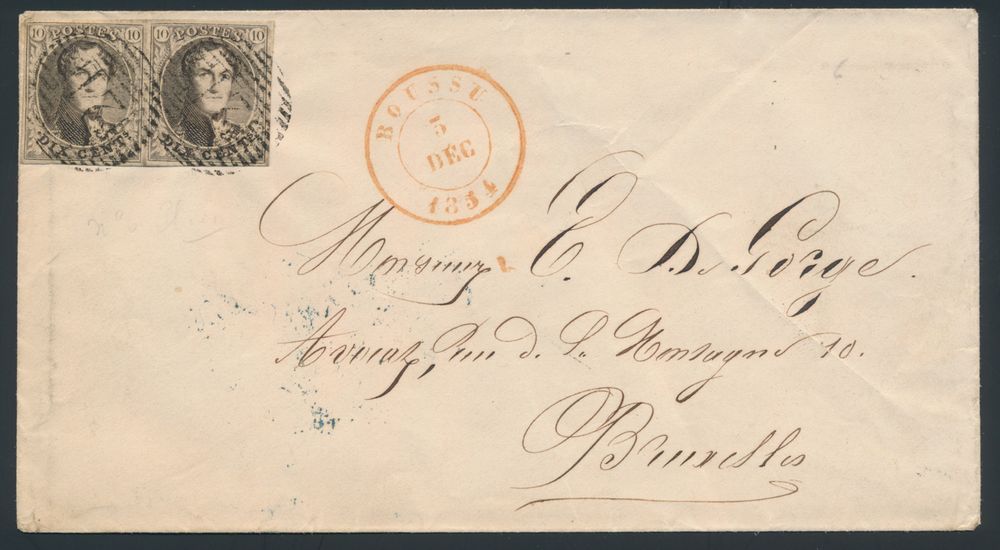 10 POSTES 10 10 POSTES 10
DIX CENTS DIX CENTS
BOUSSU
5
DEC
1854
Monsieur E. De Gorge.
Avocat, Rue d. la Montagne 10.
Bruxelles